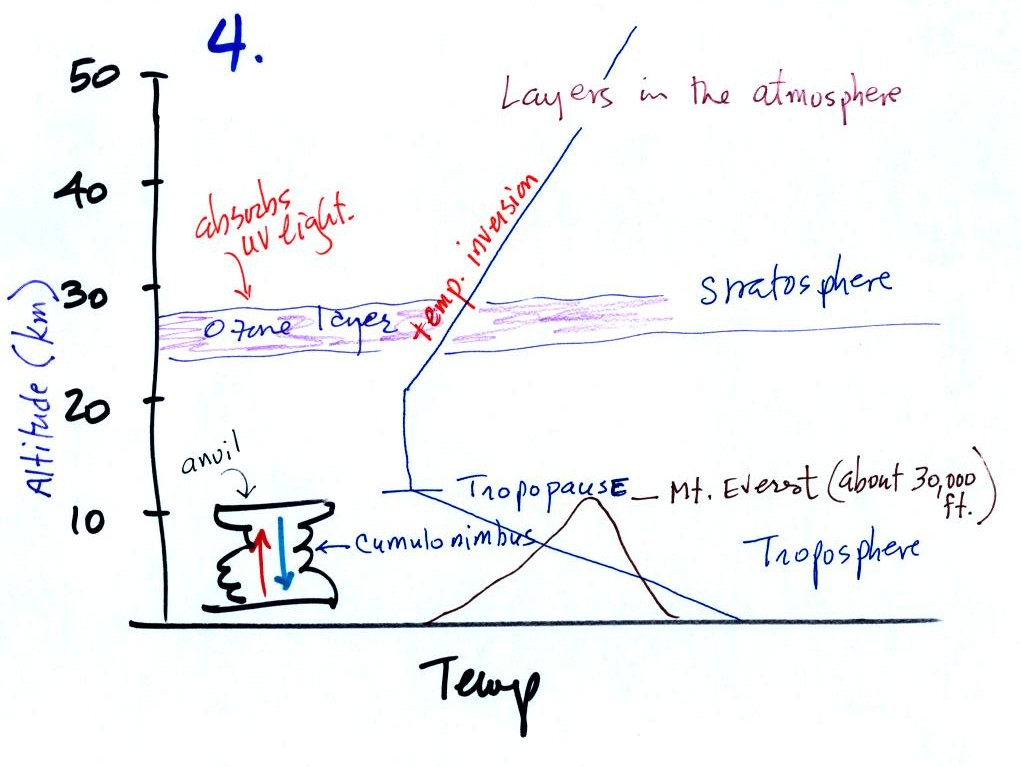 4.
50
Layers in the atmosphere
40
absorbs
uv light.
temp. inversion
30
stratosphere
Ozone layer
Altitude (km)
20
anvil
Tropopause
Mt. Everest (about 30,000
ft.)
10
cumulonimbus
Troposphere
Temp